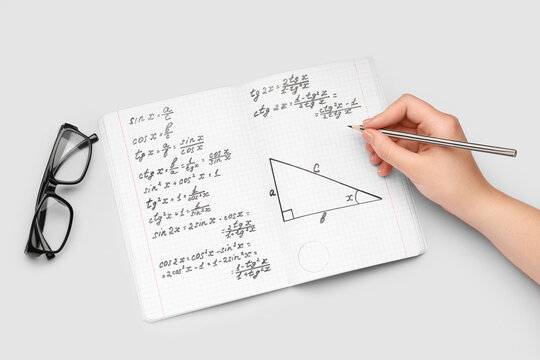 sin x = a/c
cos x = b/c
tg x = a/b = sin x/cos x
ctg x = b/a = 1/tg x = cos x/sin x
sin² x + cos² x = 1
tg² x + 1 = 1/cos² x
ctg² x + 1 = 1/sin² x
sin 2x = 2 sin x · cos x =
= 2 tg x/1 + tg² x
cos 2x = cos² x - sin² x =
= 2 cos² x - 1 = 1 - 2 sin² x =
= 1 - tg² x/1 + tg² x
tg 2x = 2 tg x/1 - tg² x
ctg 2x = 1 - tg² x/2 tg x =
= ctg² x - 1/2 ctg x
c
a
x
b